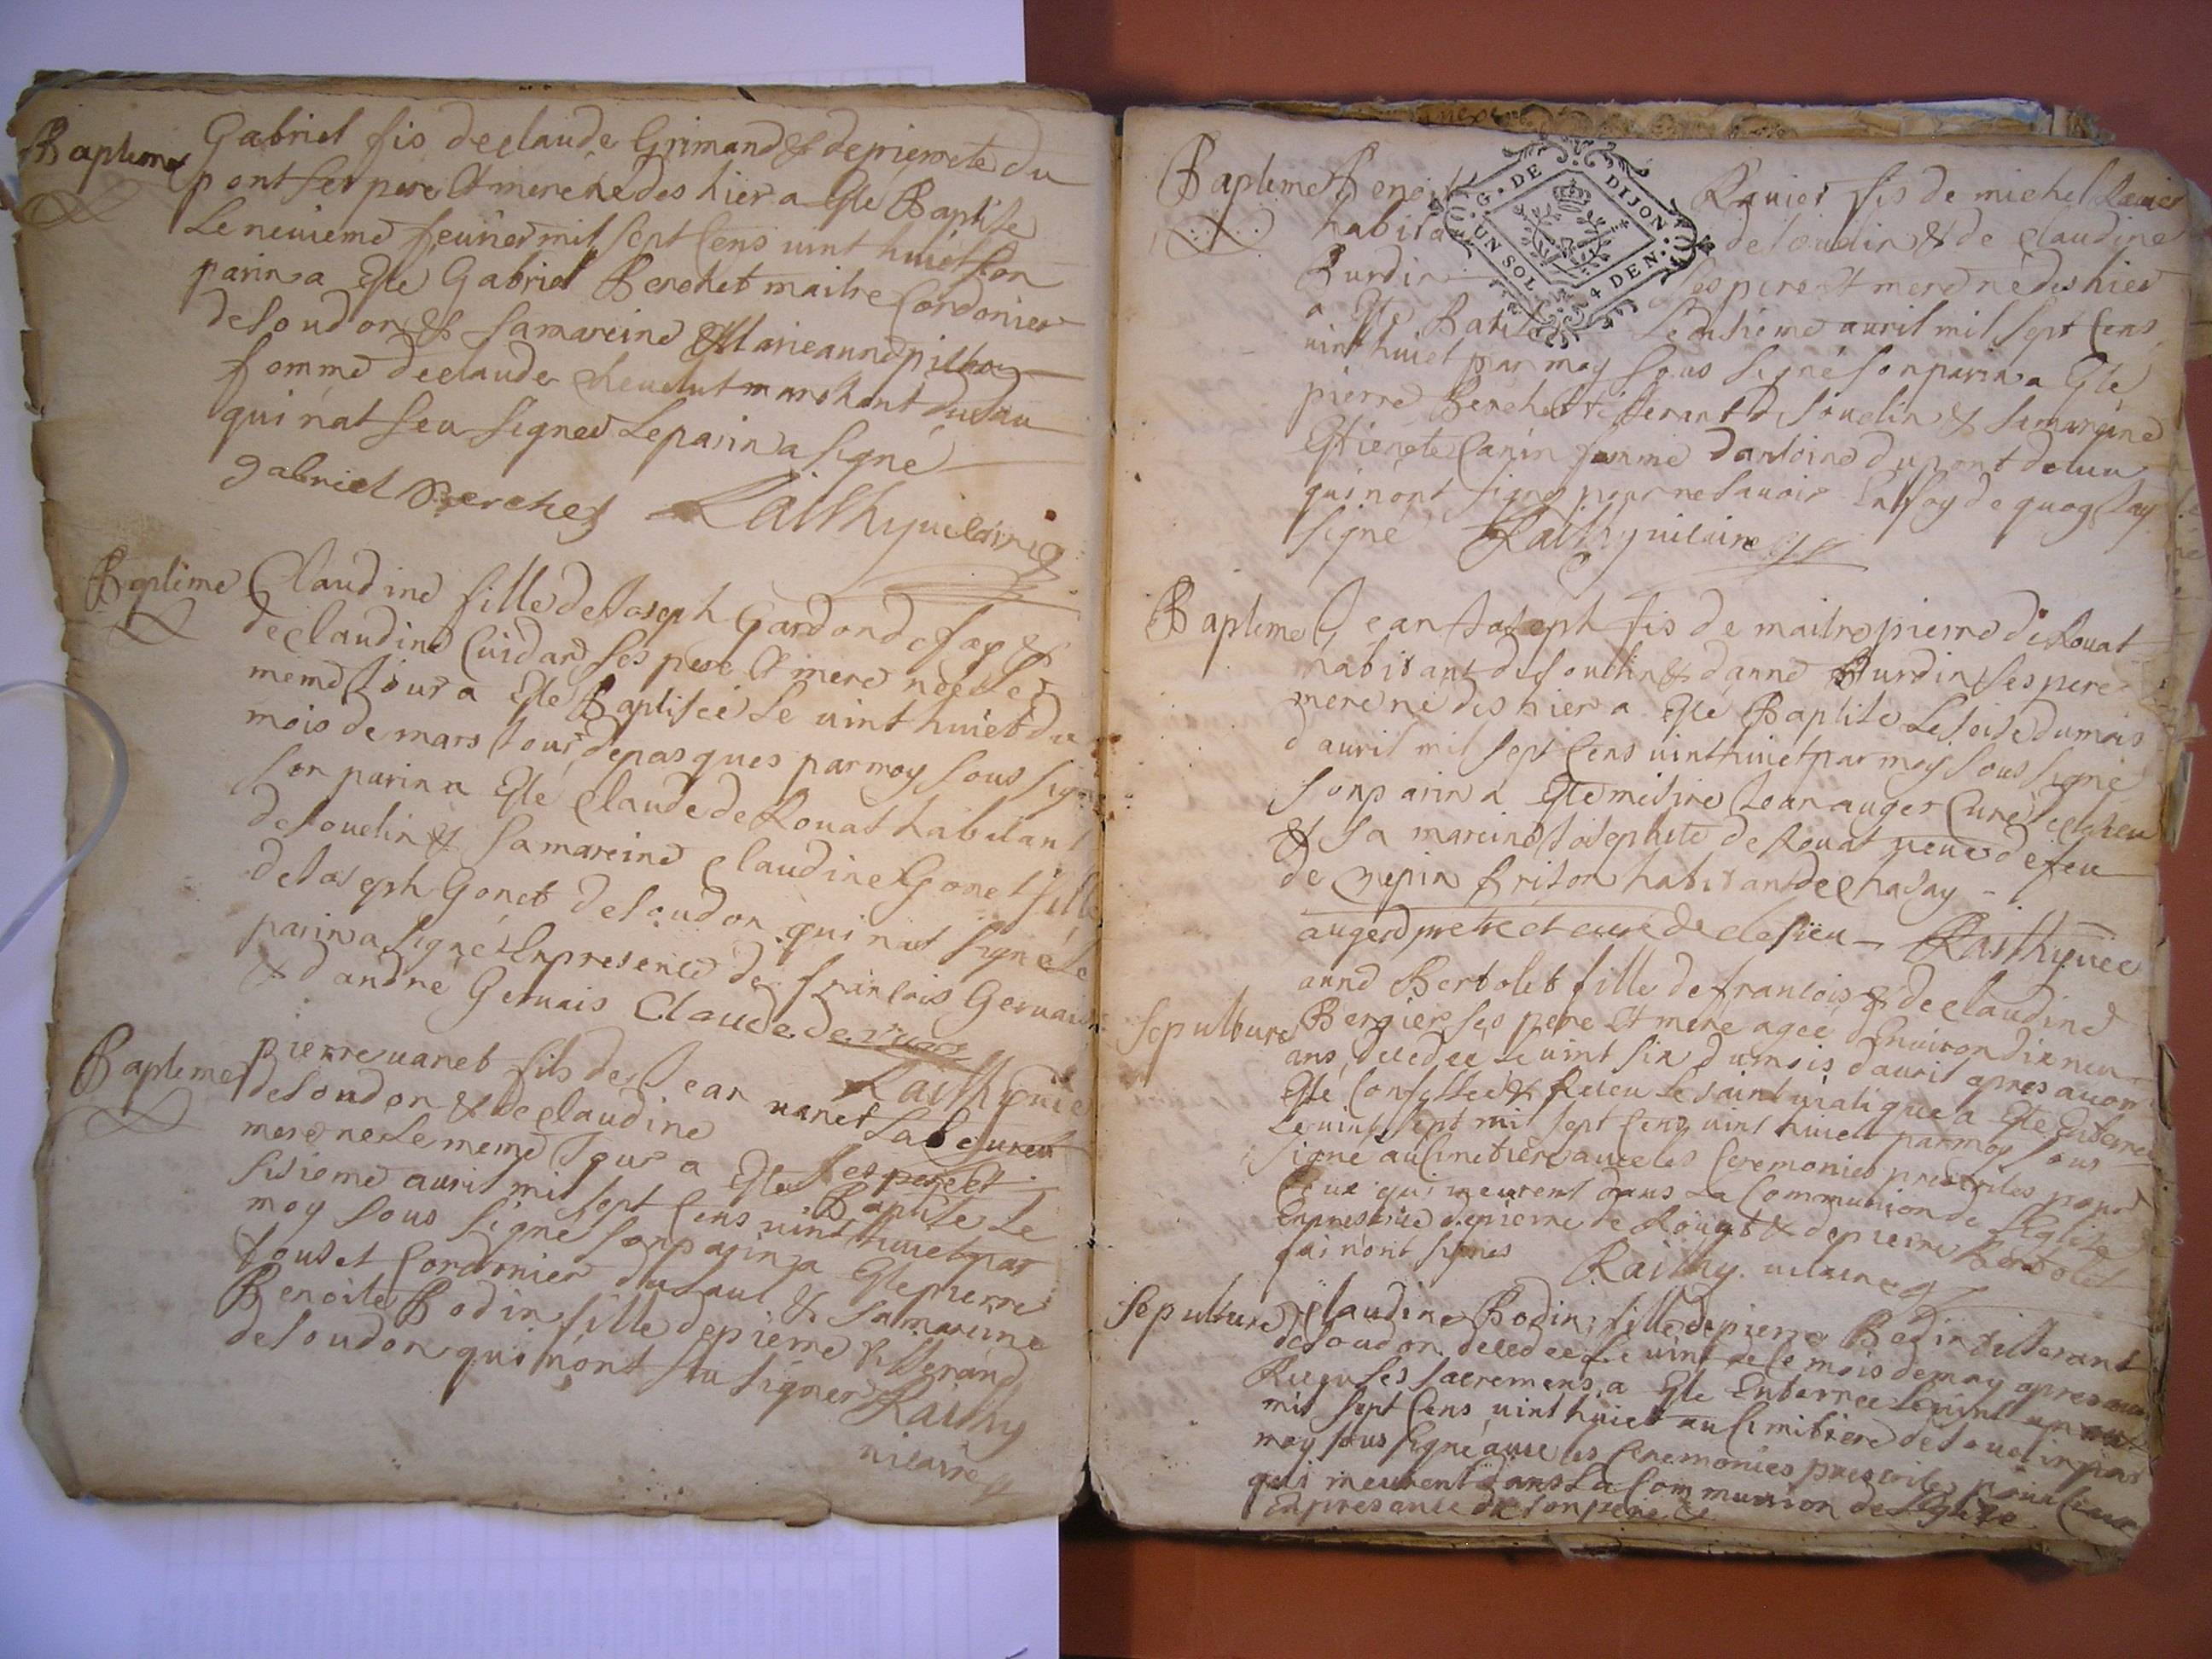 Bapteme
Gabriel fis de claude Grimand & de pierrete du
pont ses pere Et mere né des hier a Esté Baptise
Le neuieme feurier mil sept Cens uint huict son
parin a Esté Gabriel Berchet maitre Cordonier
de soudon & sa mareine Marie anne pithou
femme de claude cheuelut marchant dudau
qui n'at seu signer Le parin a signé
gabriel berchet Raithy uicaire
Bapteme
Claudine fille de Joseph Gardon de fay &
de claudine Cuidard ses pere Et mere née Le
meme Jour a Esté Baptisée Le uint huict du
mois de mars Jour de pasques par moy sous sign
son parin a Esté claude de Rouat habitant
de souclin & sa mareine claudine Gonet fille
de Joseph Gonet de soudon qui n'at signé Le
parin a signé En presence de francois Geruais
& d'andré Geruais Claude de ruat
Raithy uic
Bapteme
pierre uanet fils de Jean uanet Laboureur
de soudon & de claudine ses pere Et
mere né Le meme Jour a Esté Baptise Le
sisieme auril mil sept Cens uint huict par
moy sous signé son parin a Esté pierre
Touset Cordonier du saut & sa mareine
Benoite Bodin fille de pierre tisserand
de soudon qui n'ont seu signer Raithy
uicaire
G. DE DIJON
UN SOL 4 DEN.
Bapteme
Benoit Rauier fis de michel Rauier
habita de souclin & de claudine
Burdin ses pere Et mere né des hier
a Esté Batise Le onsieme auril mil sept Cens
uint huict par moy sous signé son parin a Esté
pierre Berchet tisserant de souclin & sa mareine
Estienete Canin femme d'antoine dupont de luu
qui n'ont signé pour ne sauoir En foy de quoy J'ay
signé Raithy uicaire
Bapteme
Jean Joseph fis de maitre pierre de Rouat
habitant de souclin & d'anne Burdin ses pere
mere né des hier a Esté Baptise Le seise du mois
d'auril mil sept Cens uint huict par moy sous signé
son parin a Esté mesire Jean auger Curé
& sa mareine Josephte de Rouat ueuue de feu
de crepin frison habitant de chasay
auger pretre et curé de Raithy uic
Sepulture
anne Bertolet fille de francois & de claudine
Bergier ses pere Et mere agée d'Enuiron dix neu
ans decedée Le uint six du mois d'auril apres auoir
Esté Confessée & Receu Le saint uiatique a Esté Enterrée
Le uint sept mil sept Cens uint huict par moy sous
signé au Cimetiere auec les Ceremonies prescrites pour
Ceux qui meurent dans La Communion de L'Eglise
En presence de pierre de Rouat & de pierre Bertolet
qui n'ont signés Raithy uicaire
Sepulture
claudine Bodin fille de pierre Bodin tisserant
de soudon decedée Le uint de Ce mois de may apres auoir
Receu ses sacremens a Esté Enterrée Le uint un
mil sept Cens uint huict au Cimitiere de souclin par
moy sous signé auec les Ceremonies prescrites pour Ceux
qui meurent dans La Communion de L'Eglise
En presence de son pere &